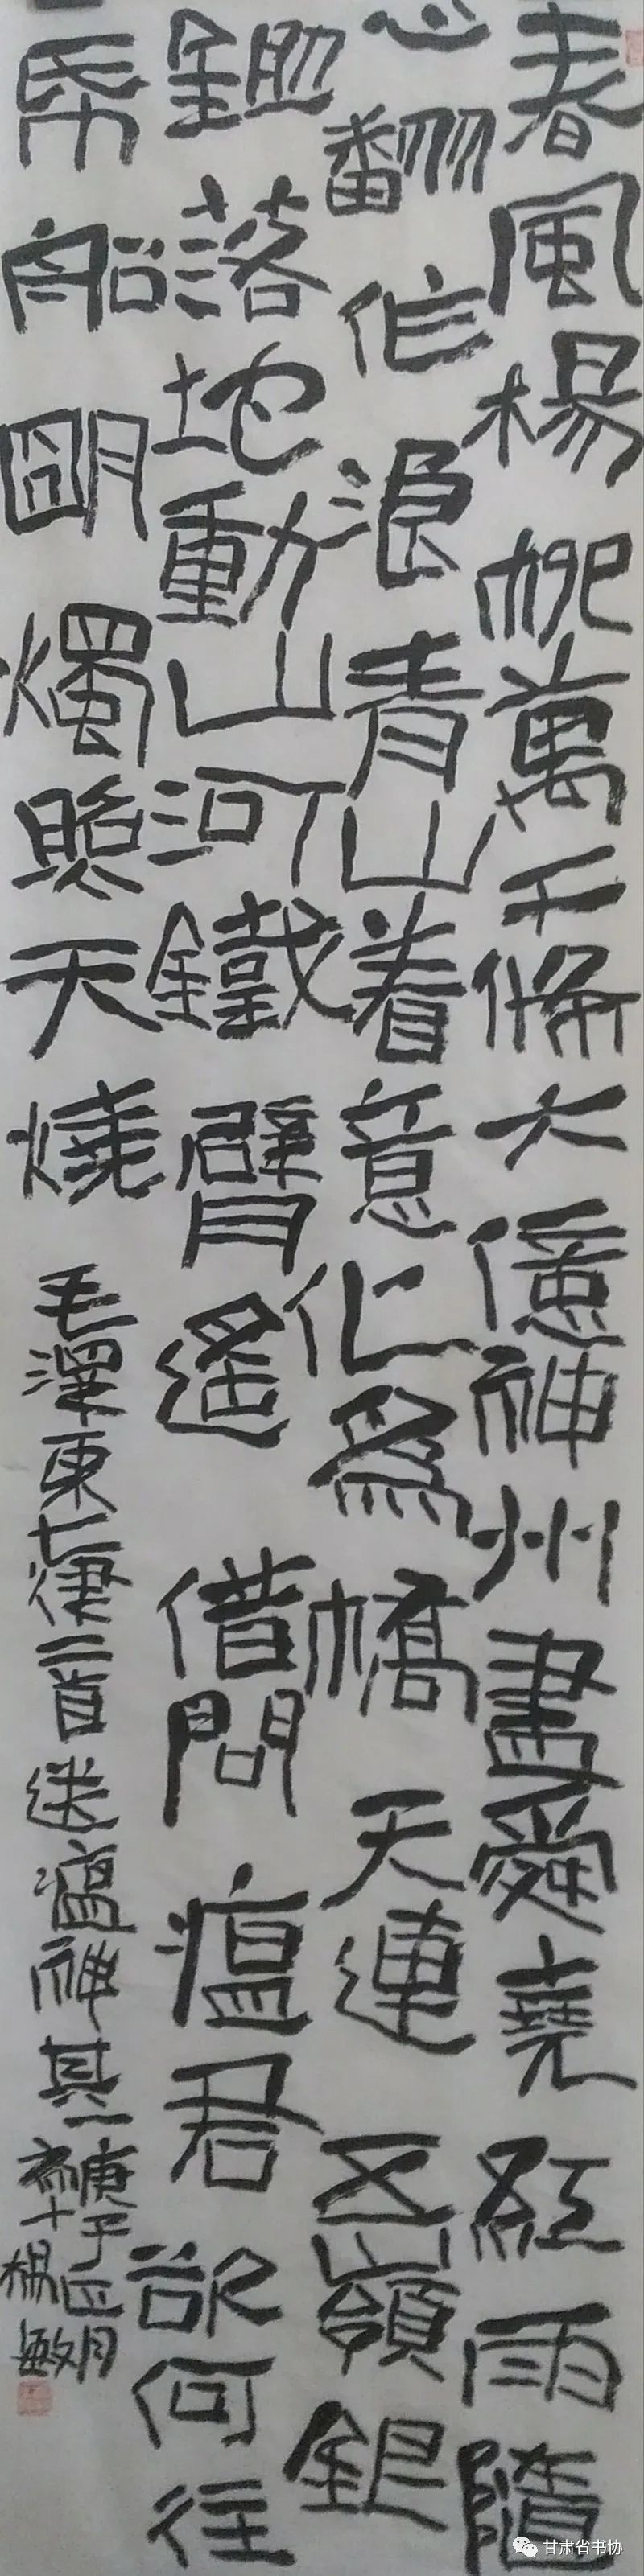 春風楊柳萬千條六億神州盡舜堯紅雨隨
心翻作浪青山着意化爲橋天連五嶺銀
鋤落地動山河鐵臂遙借問瘟君欲何往
帋船明燭照天燒
毛澤東七律二首送瘟神其二
庚子正月
楊敏
甘肃省书协